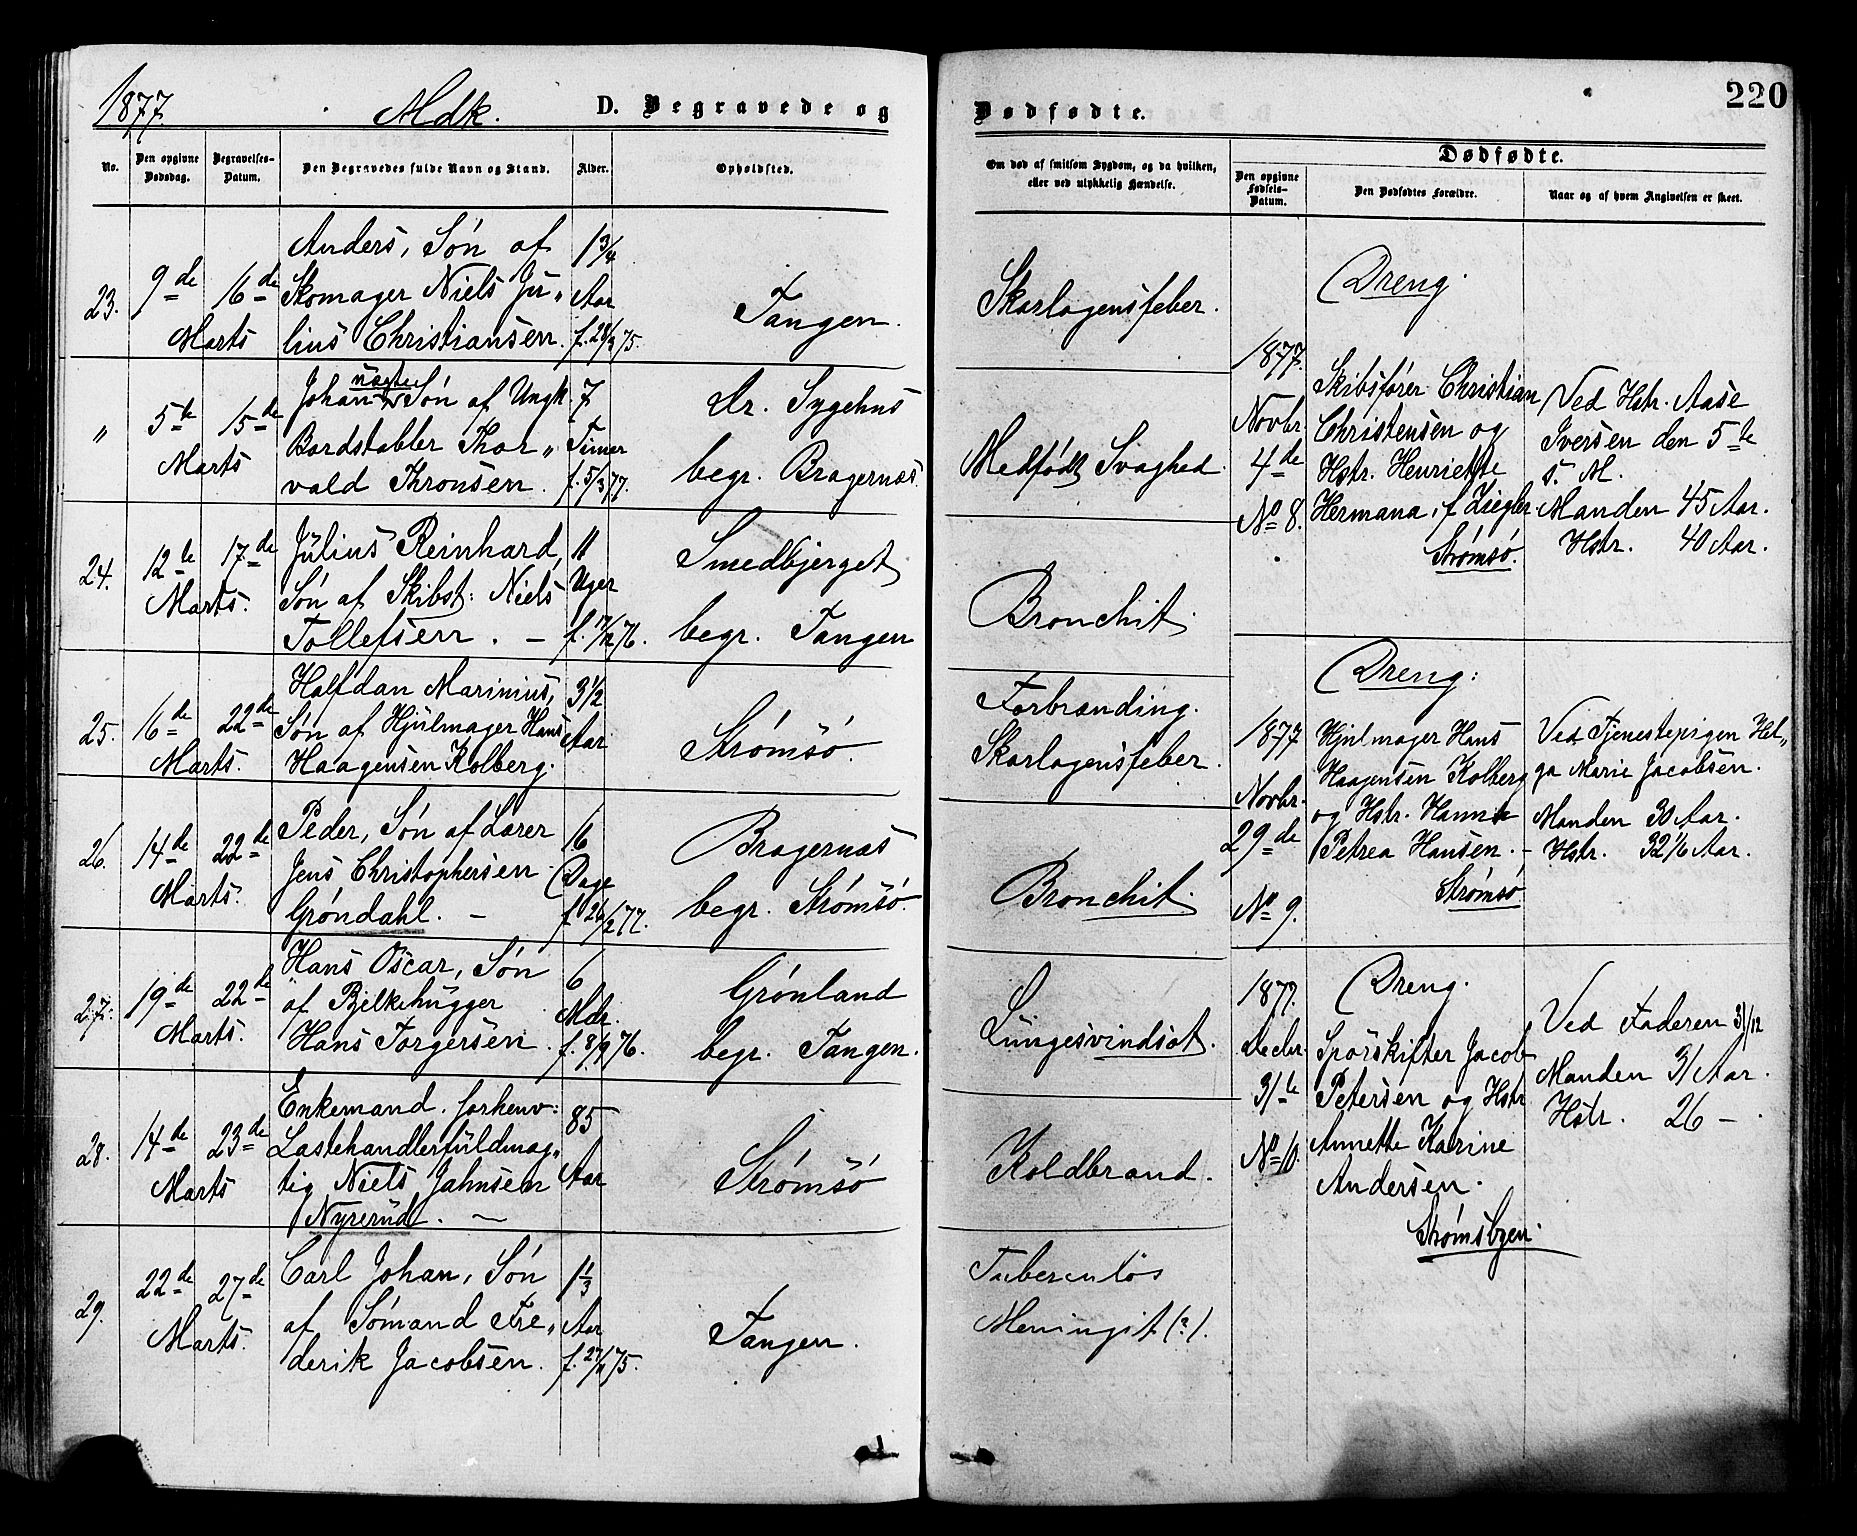 1877.
Mdk.
D. Begravede og
No.
Den opgivne
Dødsdag.
Begravelses-
Datum.
Den Begravedes fulde Navn og Stand.
Alder.
Opholdsted.
23.
9de
16de
Marts
Anders, Søn af
Skomager Niels Ju„
lius Christiansen.
1 3/4
Aar
Tangen.
„
5te
15de
Marts
nøstr
Johan Søn af Ungk.
Thor„
vald Thronsen.
7
Timer
f. 5/3 77.
Dr. Sygehus
begr. Bragernæs.
24.
12te
17de
Marts.
Julius Reinhard,
Søn af Skibst: Niels
Tollefsen. –
11
Uger
f. 17/12 76.
Smedbjerget
begr. Tangen
25.
16de
22de
Marts.
Halfdan Marinius,
Søn af Hjulmager Hans
Haagensen Kolberg.
3 1/2
Aar
Strømsø.
26.
14de
22de
Marts.
Peder, Søn af Lærer
Jens Christophersen
Grøndahl. –
16
Dage
f. 26/2 77.
Bragernæs
begr. Strømsø.
27.
19de
22de
Marts.
Hans Oscar, Søn
af Bjelkehugger
Hans Torgersen.
6
Mdr.
f. 8/9 76.
Grønland
begr. Tangen.
28.
14de
23de
Marts
Enkemand. forhenv:
Lastehandlerfuldmæg„
tig Niels Jahnsen
Nyrerud. –
85
Aar
Strømsø
29.
22de
27de
Marts.
Carl Johan, Søn
af Sømand Fre„
derik Jacobsen.
1 1/3
Aar
f. 27/11 75.
Tangen.
Dødfødte.
220
Om død af smitsom Sygdom, og da hvilken,
eller ved ulykkelig Hændelse.
Dødfødte.
Den opgivne
Fødsels-
Datum.
Den Dødfødtes Forældre.
Naar og af hvem Angivelsen er skeet.
Skarlagensfeber.
Medfødt Svaghed.
Bronchit.
Forbrænding.
Skarlagensfeber.
Bronchit.
Lungesvindsot.
Koldbrand.
Tuberculøs
Meningit (?).
1877.
Novbr.
4de
No 8.
Dreng.
Skibsfører Christian
Christensen og
Hstr. Henriette
Hermana, f. Ziegler.
Strømsø.
Ved Hstr. Aase
Iversen den 5te
s. M.
Manden 45 Aar.
Hstr. 40 Aar.
1877
Novbr.
29de
No 9.
Dreng.
Hjulmager Hans
Haagensen Kolberg
og Hstr. Hanna
Petrea Hansen. –
Strømsø
Ved Tjenestepigen Hel„
ga Marie Jacobsen.
Manden 30 Aar.
Hstr. 32 1/6 Aar.
1877.
Decbr.
31te
No 10.
Dreng.
Sporskifter Jacob
Petersen og Hstr
Annette Karine
Andersen.
Strømsbyen.
Ved Faderen 31/12
Manden 31 Aar.
Hstr. 26 –